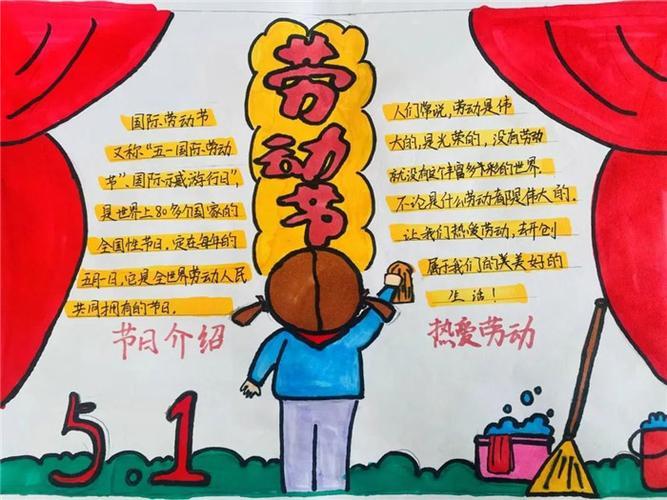 劳动节
国际劳动节
又称“五一国际劳动
节”、国际示威游行日”,
是世界上80多个国家的
全国性节日,定在每年的
五月一日,它是全世界劳动人民
共同拥有的节日。
节日介绍
人们常说,劳动是伟
大的,是光荣的,没有劳动
就没有这个丰富多彩的世界.
不论是什么劳动都是伟大的.
让我们热爱劳动,去开创
属于我们的美美好的
生活!
热爱劳动
5.1